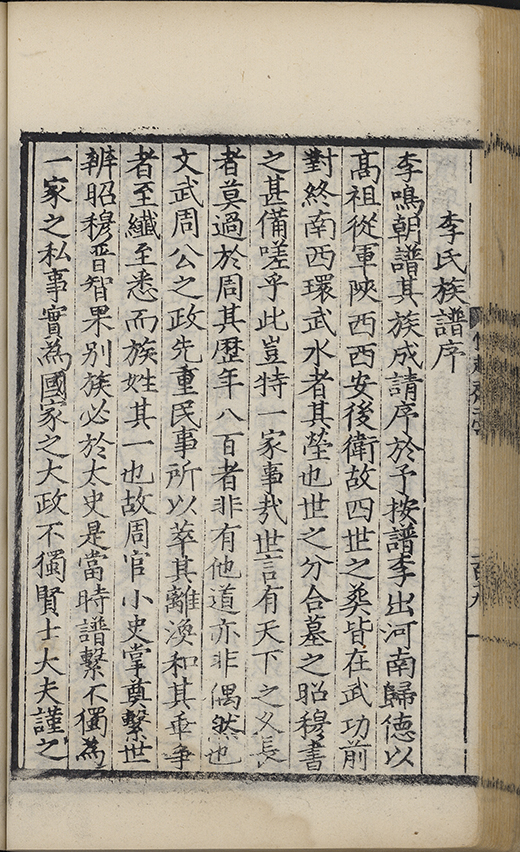 李氏族譜序
李鳴朝譜其族成請序於予按譜李出河南歸德以
高祖從軍陝西西安後衛故四世之葬皆在武功前
對終南西環武水者其塋也世之分合墓之昭穆書
之甚備嗟乎此豈特一家事㢤世言有天下之久長
者莫過於周其歷年八百者非有他道亦非偶然也
文武周公之政先重民事所以萃其離渙和其乖爭
者至纖至悉而族姓其一也故周官小史掌奠繫世
辨昭穆晋智果別族必於太史是當時譜繫不獨為
一家之私事實為國家之大政不獨賢士大夫謹之